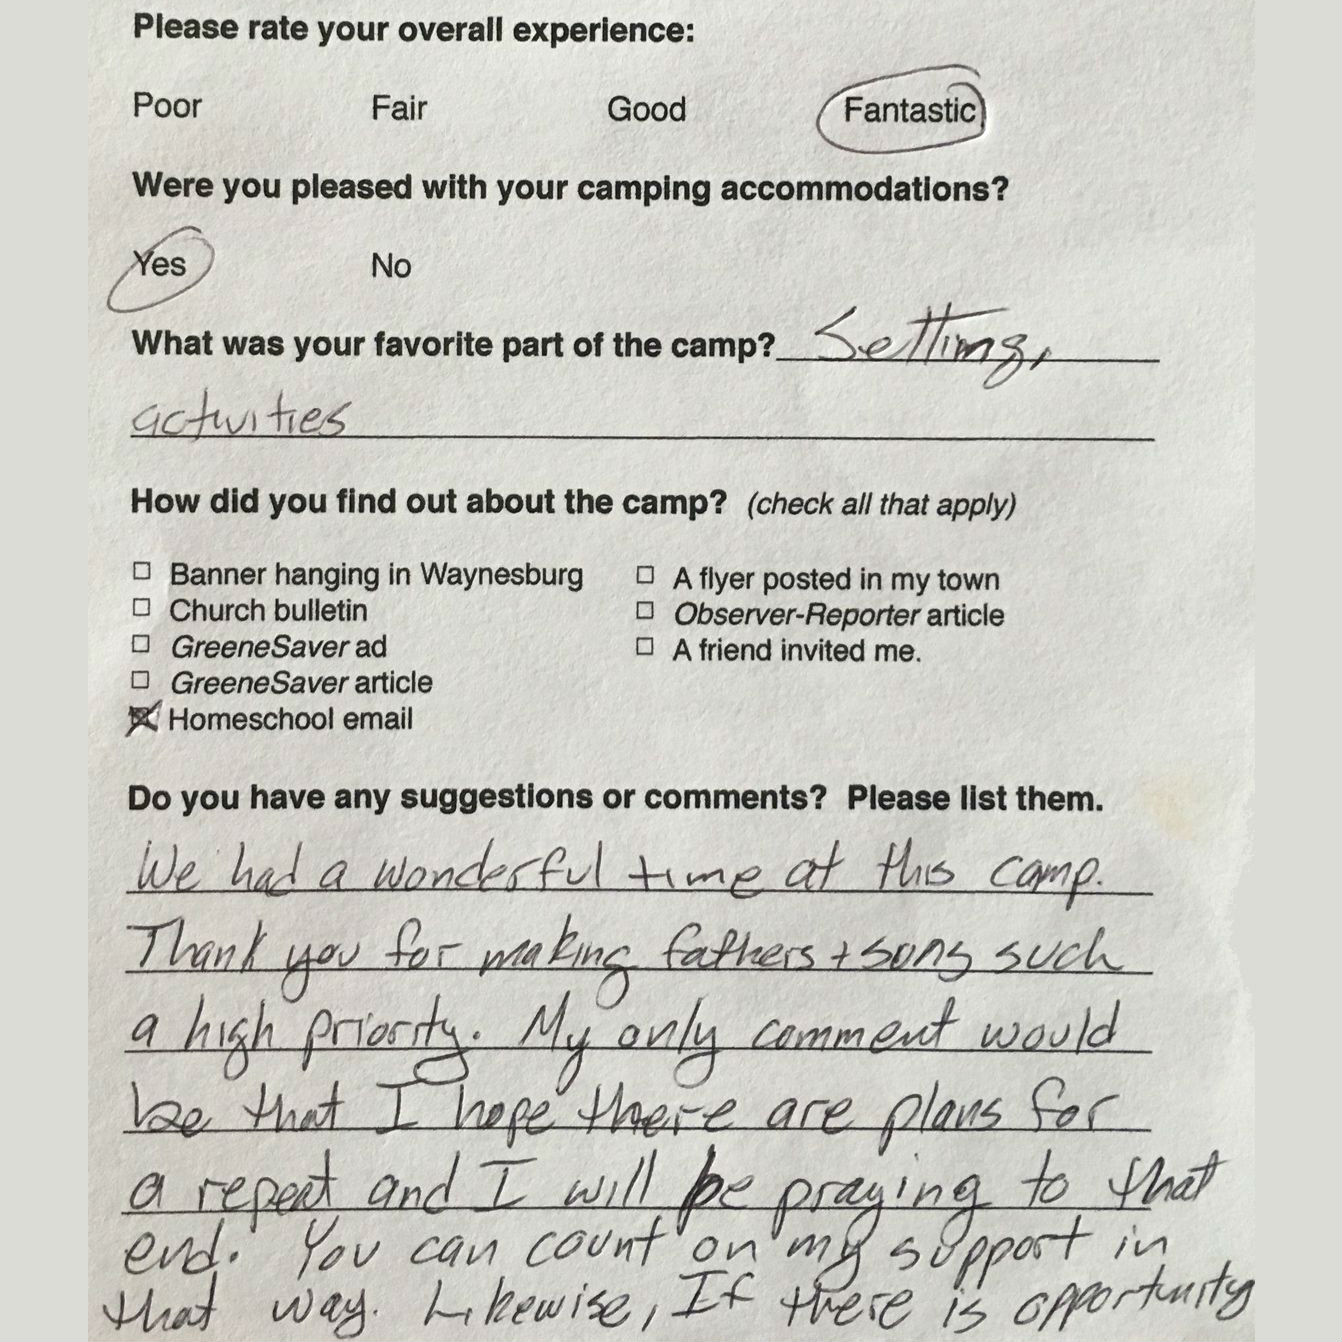 Please rate your overall experience:
Poor Fair Good Fantastic
Were you pleased with your camping accommodations?
Yes No
What was your favorite part of the camp? Setting,
activities
How did you find out about the camp? (check all that apply)
Banner hanging in Waynesburg A flyer posted in my town
Church bulletin Observer-Reporter article
GreeneSaver ad A friend invited me.
GreeneSaver article
Homeschool email
Do you have any suggestions or comments? Please list them.
We had a wonderful time at this camp.
Thank you for making fathers + sons such
a high priority. My only comment would
be that I hope there are plans for
a repeat and I will be praying to that
end. You can count on my support in
that way. Likewise, If there is opportunity